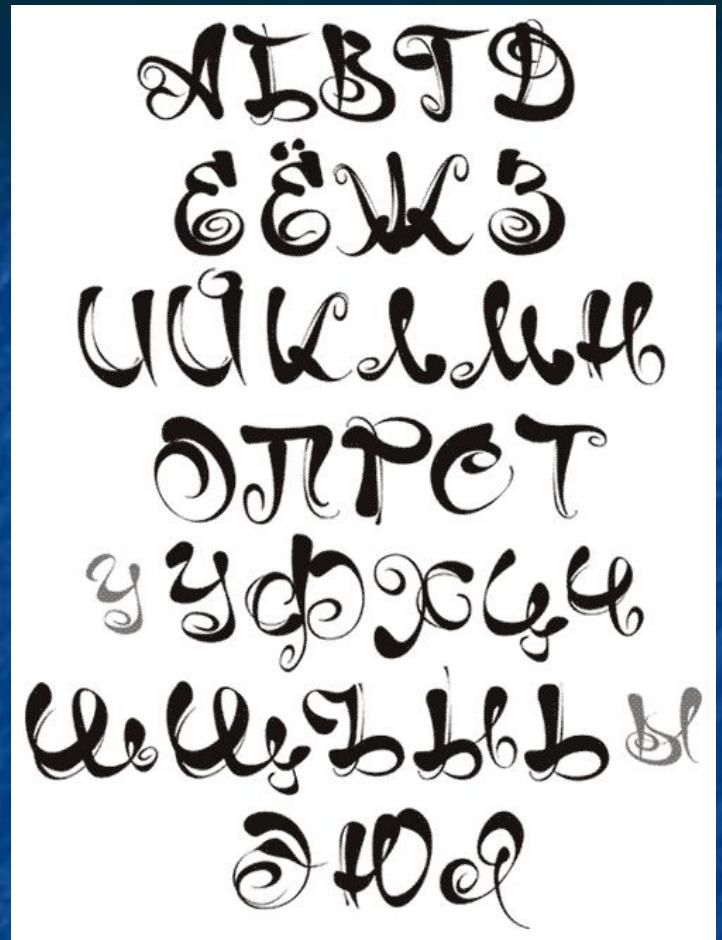 АБВГД
ЕЁЖЗ
ИЙКЛМН
ОПРСТ
УУФХЦЧ
ШЩЪЫЬЫ
ЭЮЯ